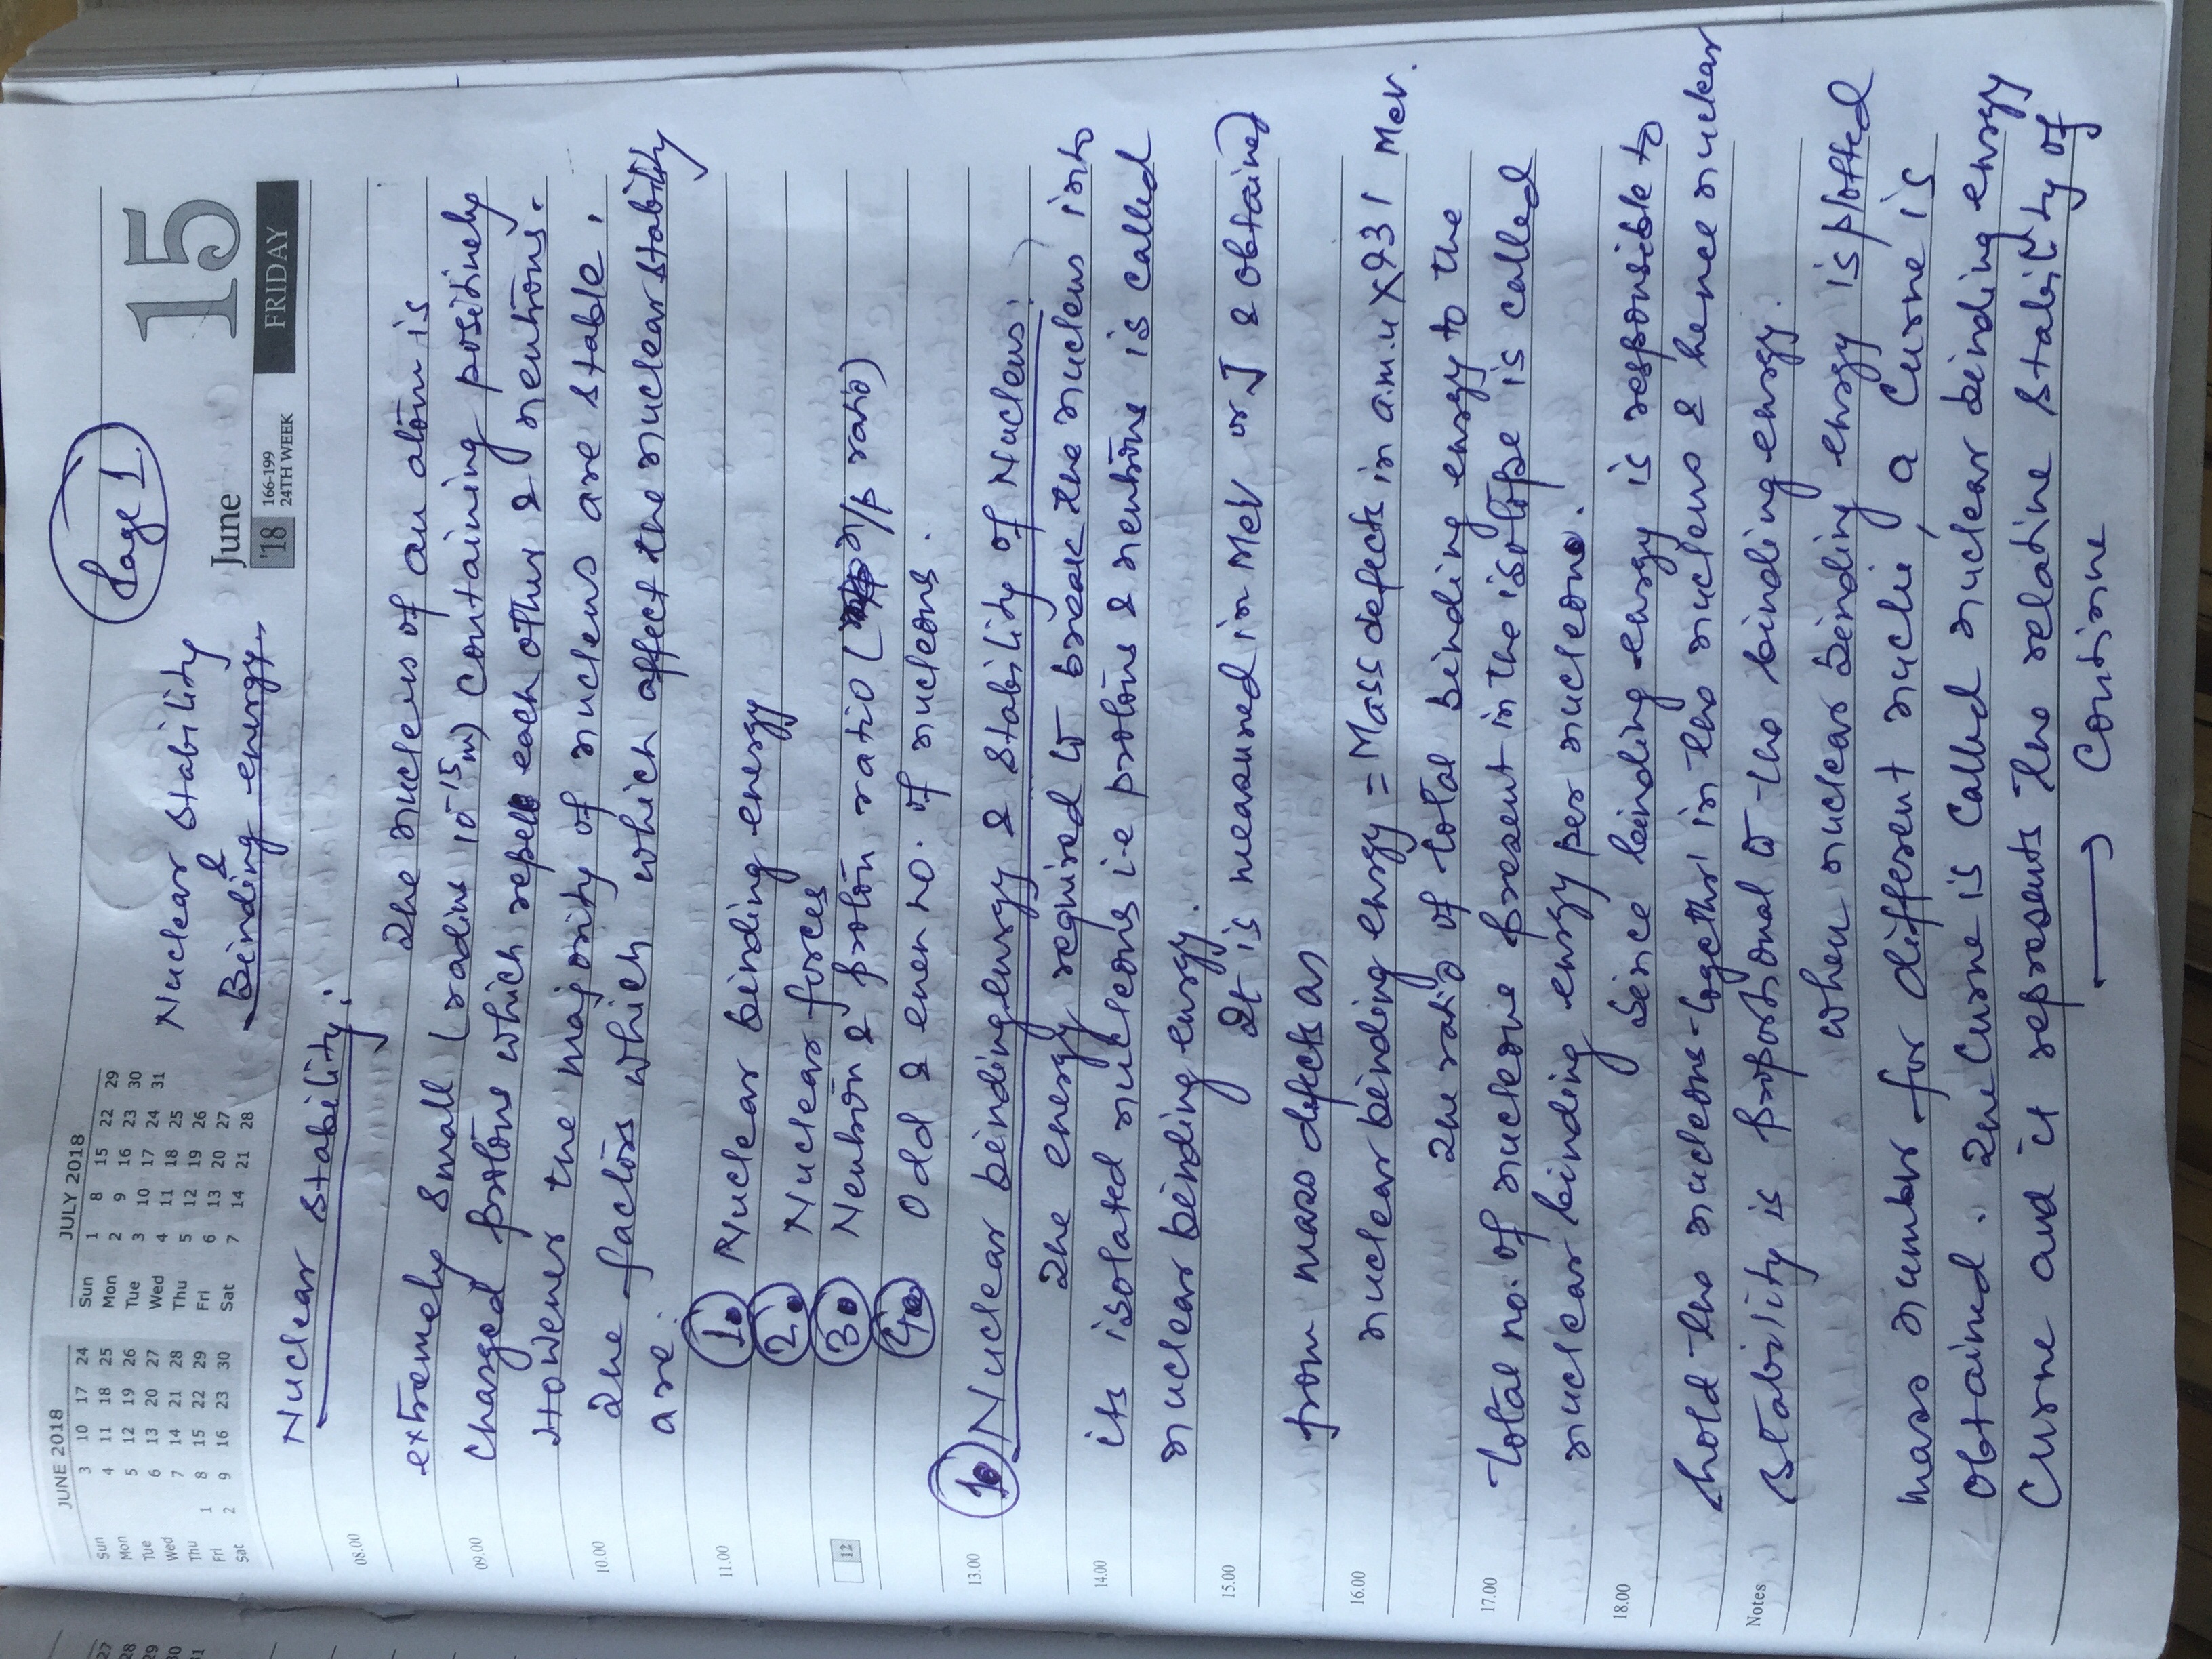 Page 1
JUNE 2018
Sun 3 10 17 24
Mon 4 11 18 25
Tue 5 12 19 26
Wed 6 13 20 27
Thu 7 14 21 28
Fri 1 8 15 22 29
Sat 2 9 16 23 30
JULY 2018
Sun 1 8 15 22 29
Mon 2 9 16 23 30
Tue 3 10 17 24 31
Wed 4 11 18 25
Thu 5 12 19 26
Fri 6 13 20 27
Sat 7 14 21 28
Nuclear Stability
&
Binding energy.
June
'18 166-199
24TH WEEK
15
FRIDAY
Nuclear Stability:
08.00
The nucleus of an atom is
extremely small (radius 10⁻¹⁵ m) containing positively
09.00
charged protons which repel each other & neutrons.
However the majority of nucleus are stable.
10.00
The factors which which affect the nuclear stability
are.
11.00
1. Nuclear binding energy
2. Nuclear forces
12
3. Neutron & proton ratio ( n/p ratio)
4. Odd & even no. of nucleons.
13.00
1. Nuclear binding energy & stability of Nucleus:
The energy required to break the nucleus into
14.00
its isolated nucleons i.e protons & neutrons is called
nuclear binding energy.
15.00
It is measured in MeV or J & obtained
from mass defects as
16.00
nuclear binding energy = Mass defects in a.m.u × 931 Mev.
The ratio of total binding energy to the
17.00
total no. of nucleons present in the isotope is called
nuclear binding energy per nucleons.
18.00
Since binding energy is responsible to
hold the nucleons together in the nucleus & hence nuclear
Notes
stability is proportional to the binding energy.
when nuclear binding energy is plotted
mass number for different nuclie, a curve is
obtained. The curve is called nuclear binding energy
curve and it represents the relative stability of
→ Continue
27
28
29
30
31